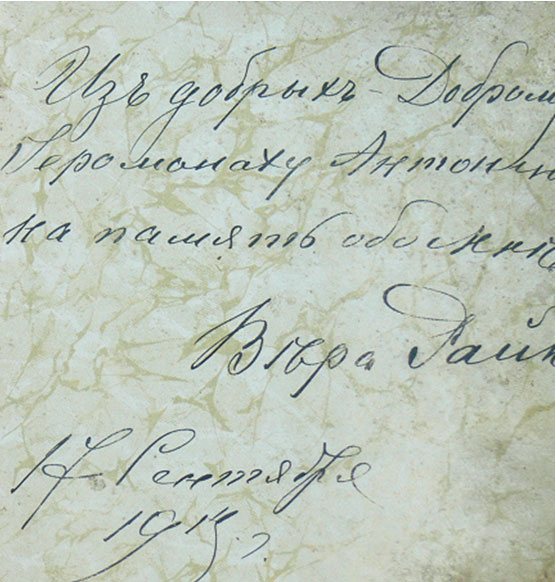 Изъ добрыхъ - Добром
Іеромонаху Антонин
на память обо мнѣ
Вѣра Райк
17 Сентября
1915 г.